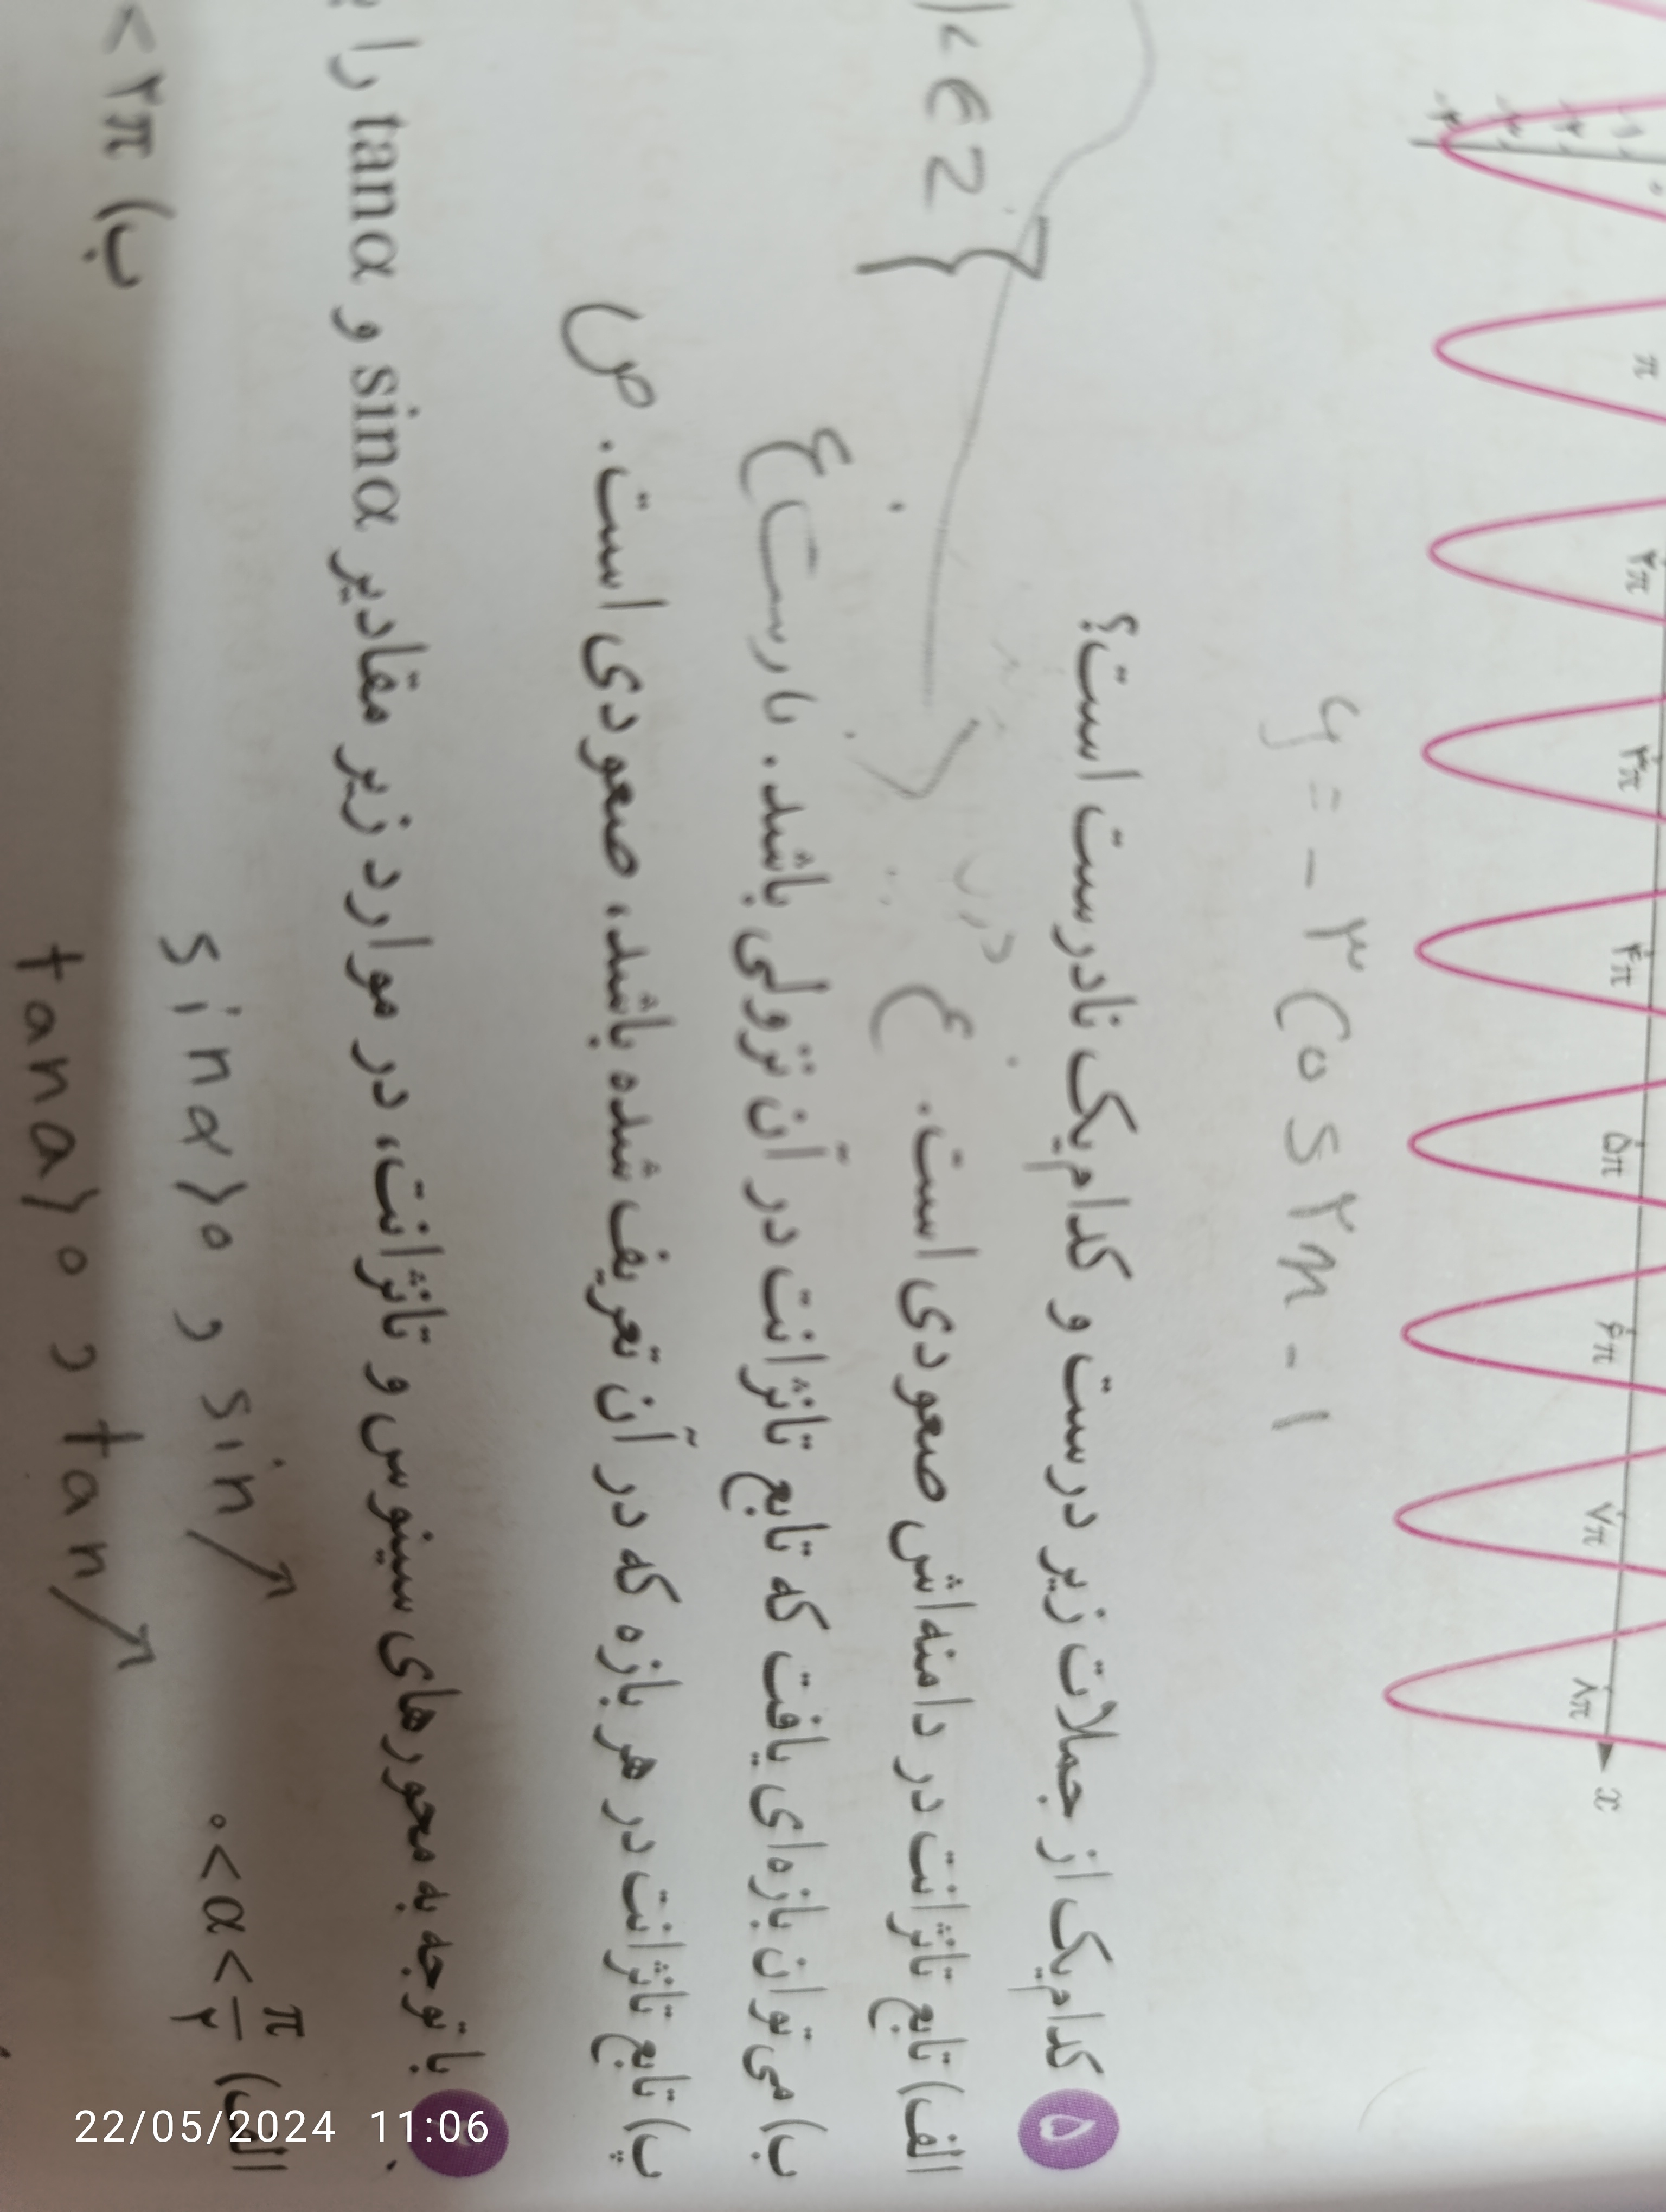 π ۲π ۳π ۴π ۵π ۶π ۷π ۸π x
y = -۳ cos ۲x - ۱
۵ کدام‌یک از جملات زیر درست و کدام‌یک نادرست است؟
الف) تابع تانژانت در دامنه‌اش صعودی است. غ
∈ Z}
ب) می‌توان بازه‌ای یافت که تابع تانژانت در آن نزولی باشد. غ
پ) تابع تانژانت در هر بازه که در آن تعریف شده باشد، صعودی است. ص
با توجه به محورهای سینوس و تانژانت، در موارد زیر مقادیر sinα و tanα را
الف) ۰ < α < π/۲
sin α > ۰ , sin ↗
tan α > ۰ , tan ↗
ب)
< ۲π
22/05/2024 11:06